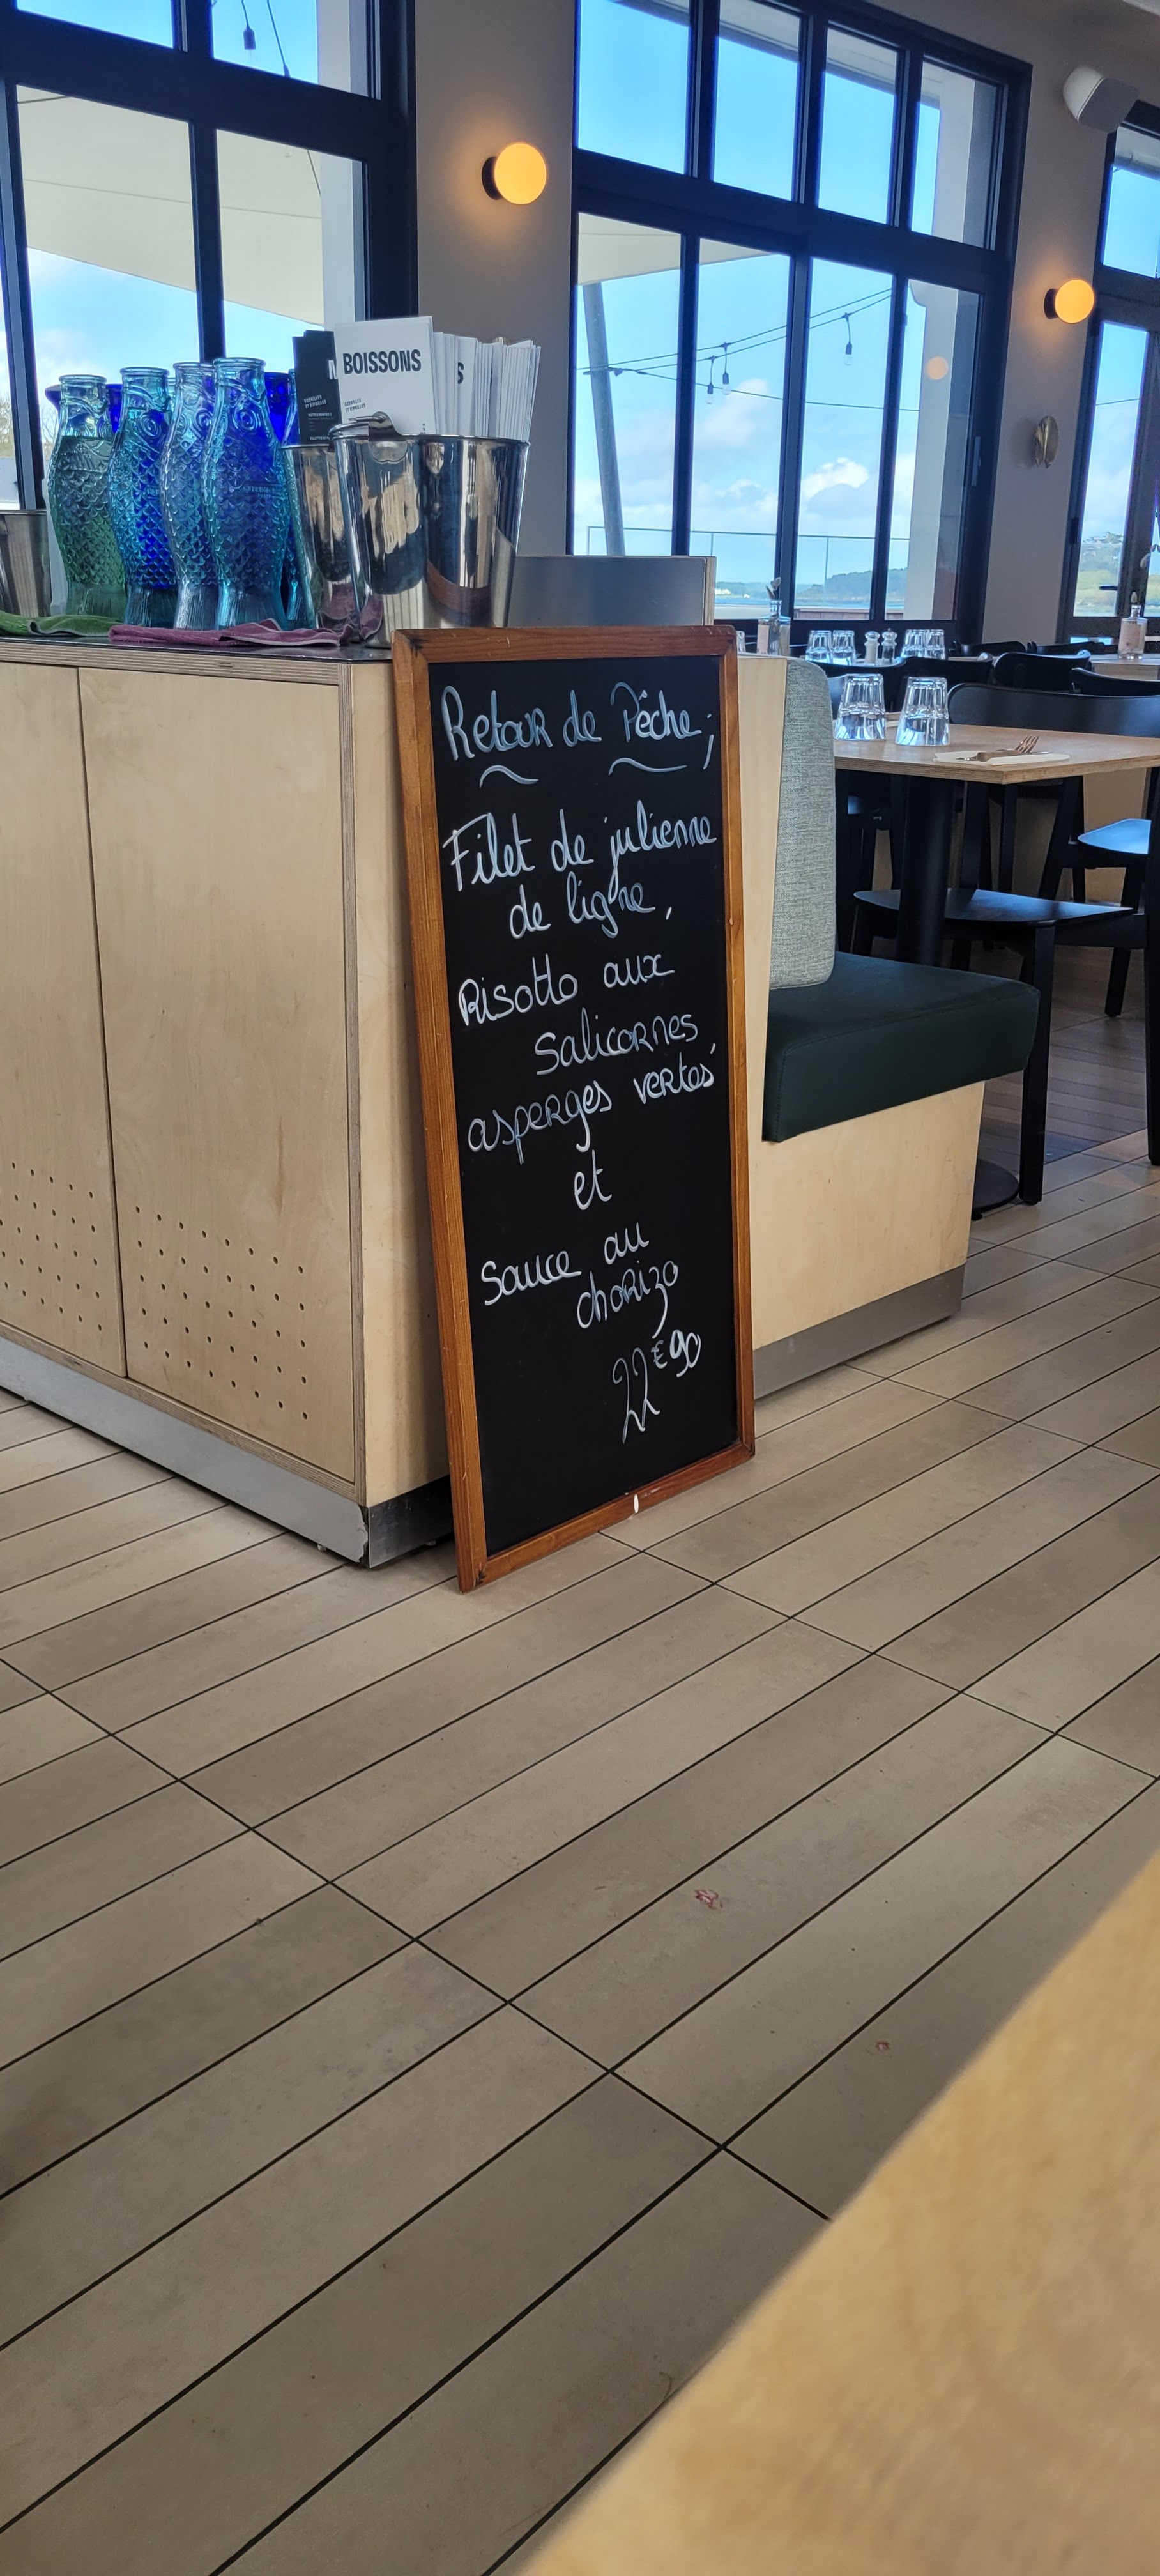 BOISSONS
S
Retour de Pêche;
Filet de julienne
de ligne,
Risotto aux
salicornes,
asperges vertes
et
Sauce au
chorizo
22€90